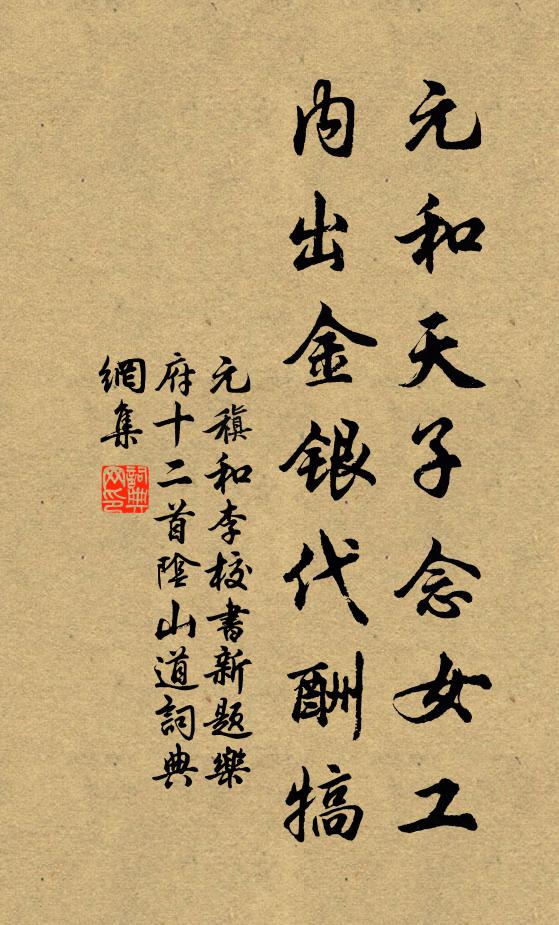 元和天子念女工
内出金銀代酬犒
元稹和李校書新題樂
府十二首陰山道詞典
網集
詞典網印